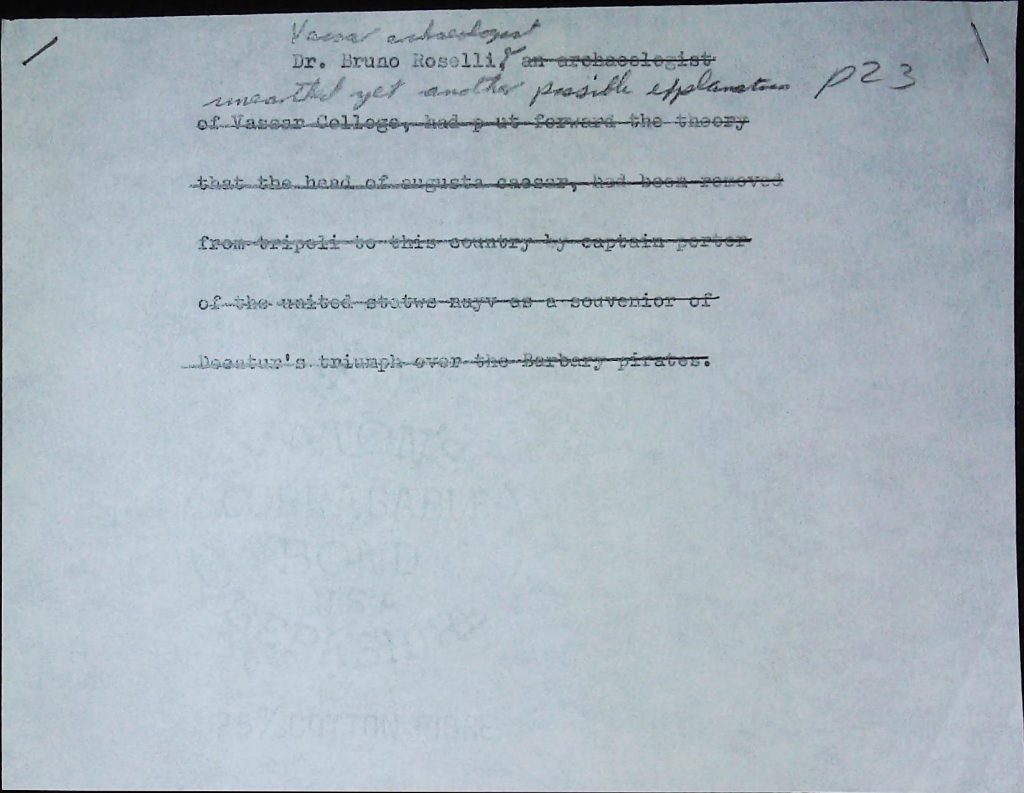 Vassar archaeologist
Dr. Bruno Roselli, an archaeologist
unearthed yet another possible explanation p23
of Vassar College, had p ut forward the theory
that the head of augusta caesar, had been removed
from tripoli to this country by captain porter
of the united statws nayv as a souvenior of
Decatur's triumph over the Barbary pirates.